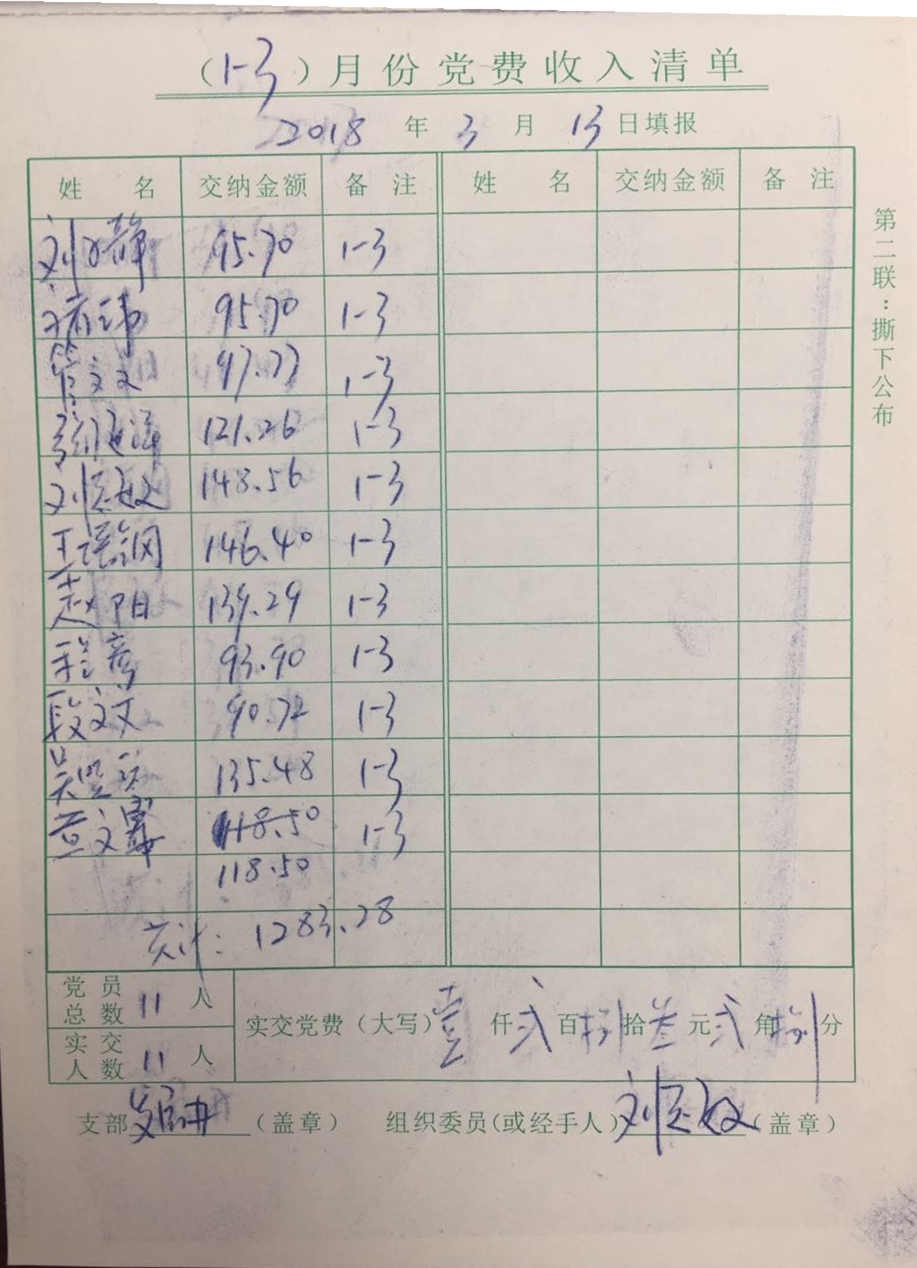 （1-3）月份党费收入清单
2018 年 3 月 13 日填报
姓 名 交纳金额 备 注 姓 名 交纳金额 备 注
刘 静 95.70 1-3
95.70 1-3
管文文 97.77 1-3
121.26 1-3
刘 敏 148.56 1-3
王 钢 146.40 1-3
赵阳 139.29 1-3
程彦 93.90 1-3
段文 90.72 1-3
吴 135.48 1-3
文 118.50 1-3
118.50
共计：1283.28
党员总数 11 人
实交人数 11 人
实交党费（大写）壹仟贰百捌拾叁元贰角捌分
支部 （盖章） 组织委员(或经手人)刘 敏（盖章）
第二联：撕下公布